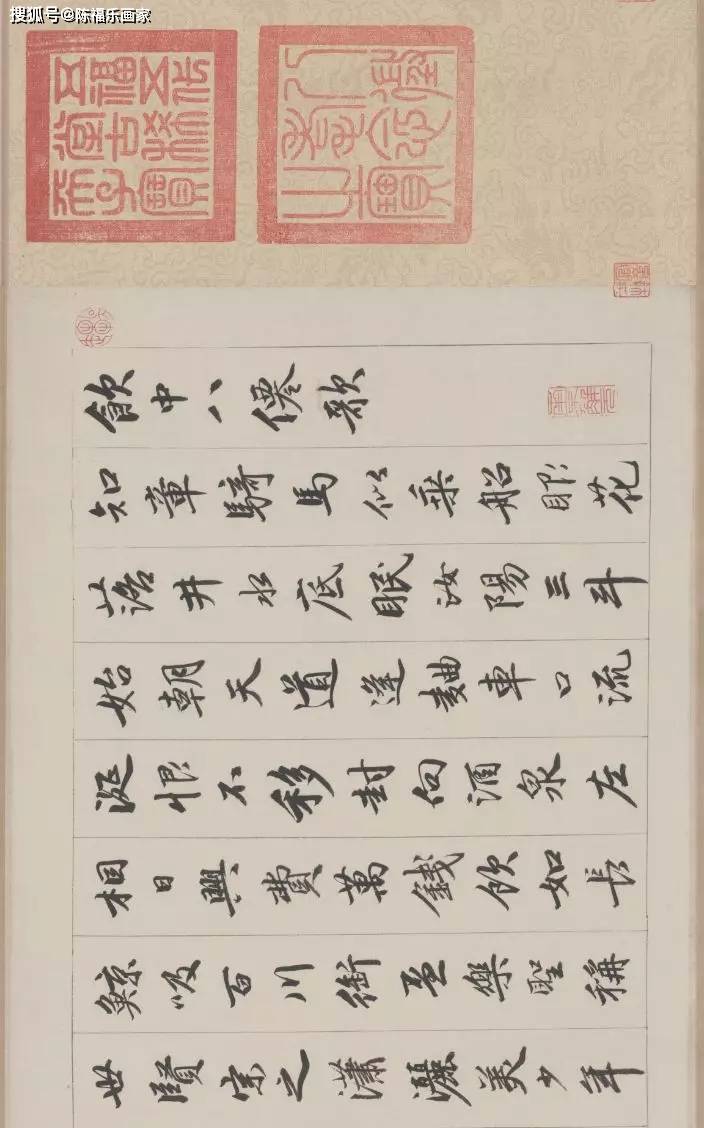 搜狐号@陈福乐画家
五福五代堂古稀天子寶
八徵耄念之寶
飲中八僊歌
知章騎馬似乘船眼花
落井水底眠汝陽三斗
始朝天道逢麯車口流
涎恨不移封向酒泉左
相日興費萬錢飲如長
鯨吸百川銜盃樂聖稱
世賢宗之瀟灑美少年